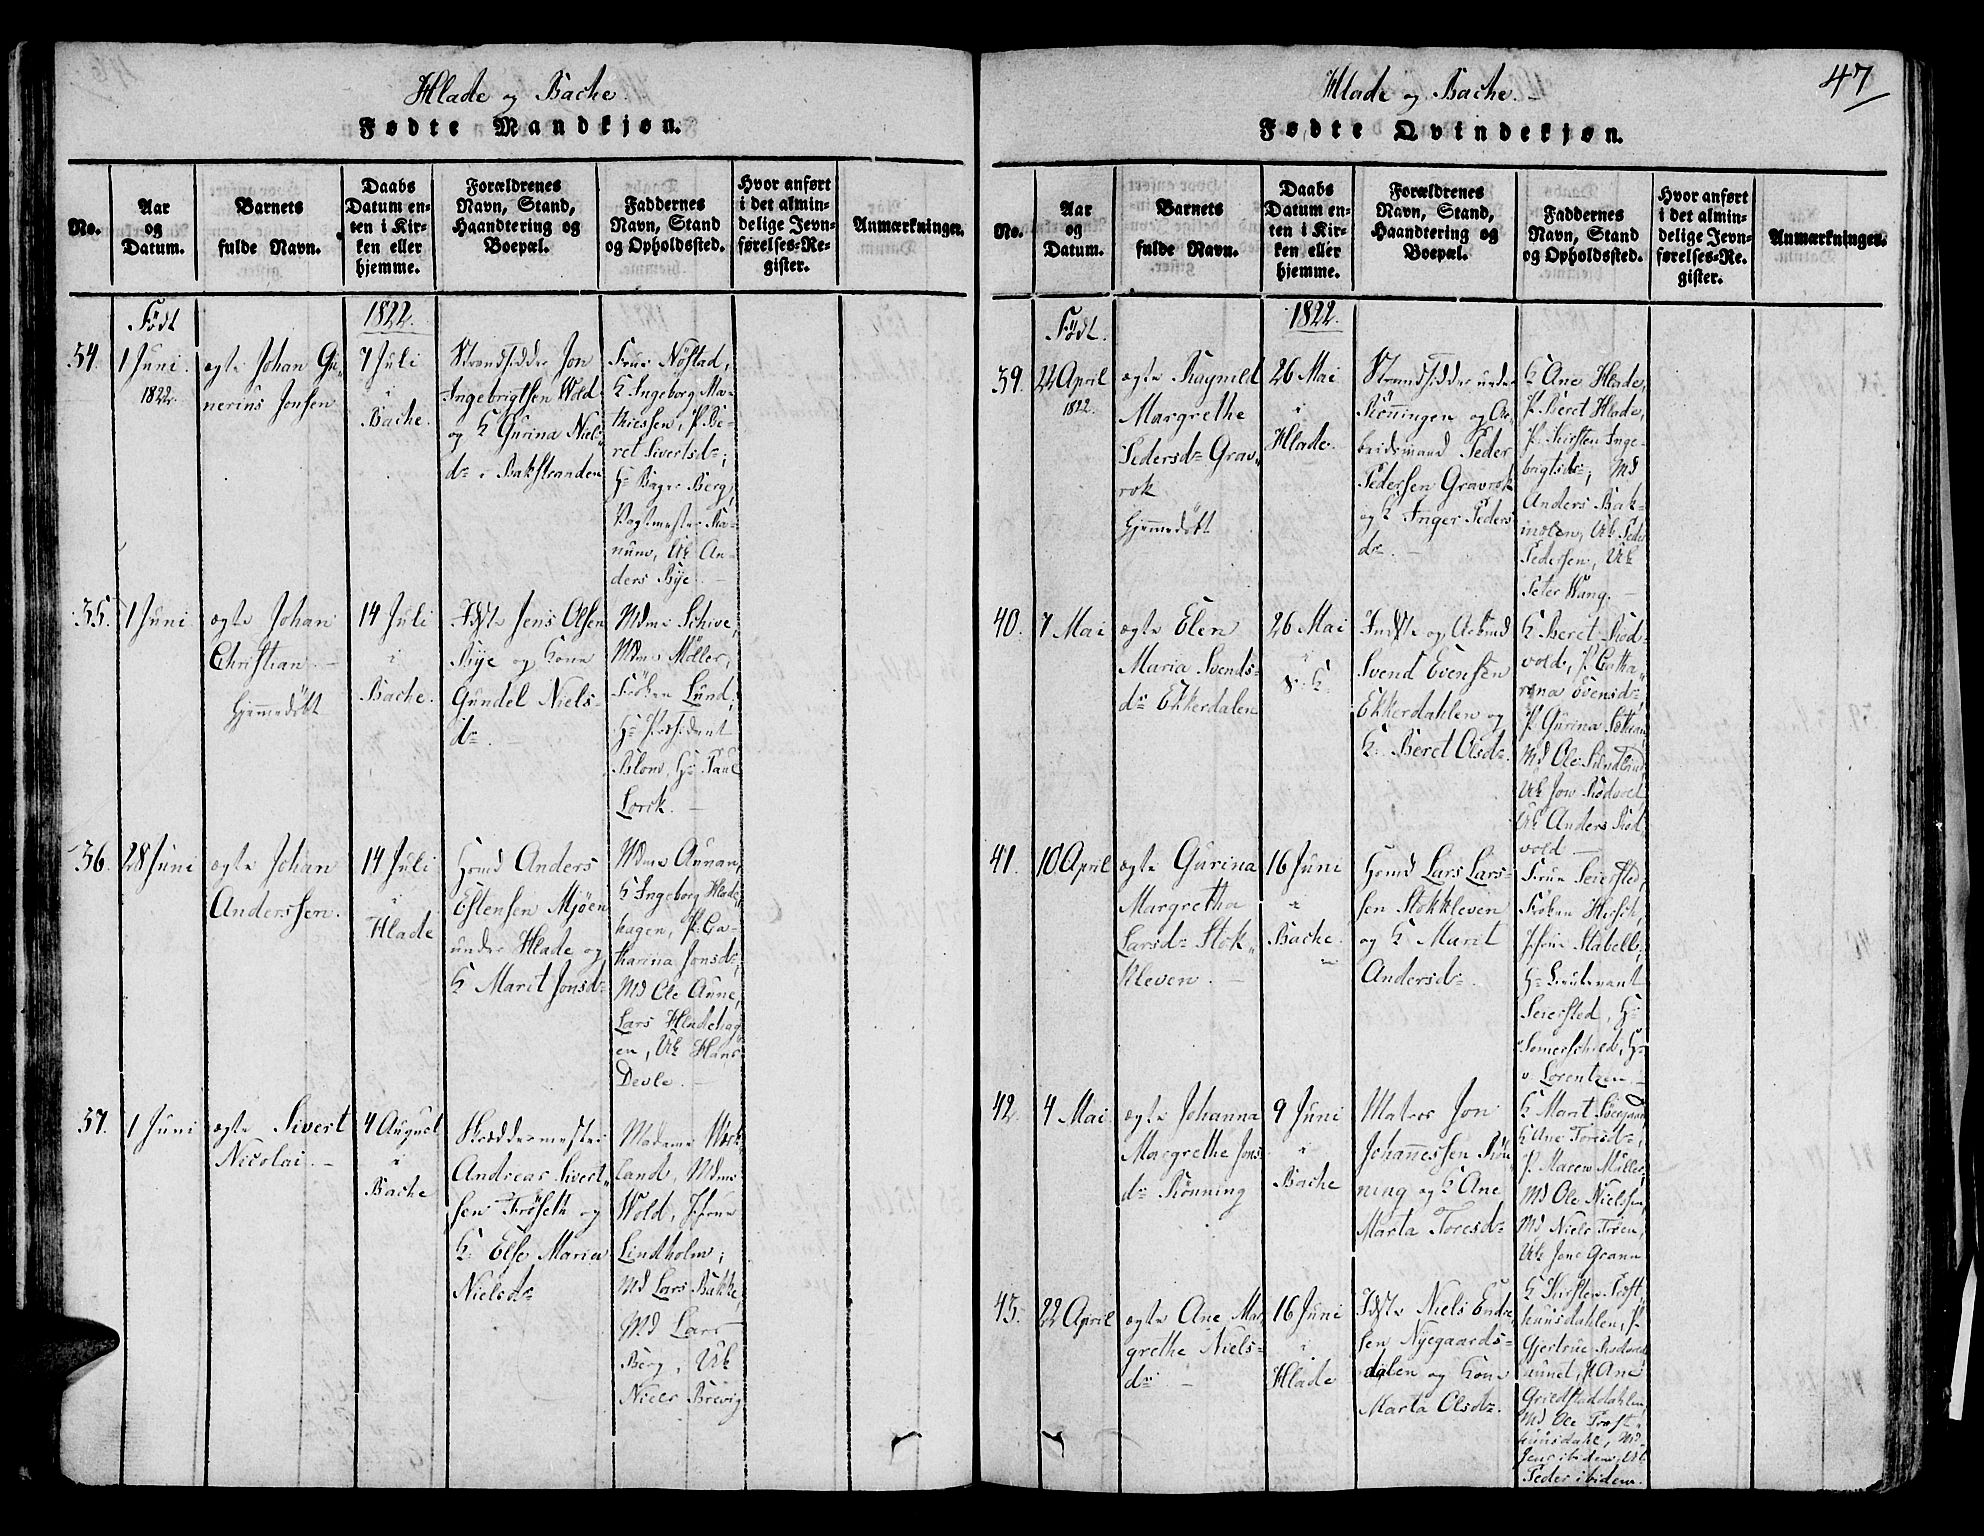 Hlade og Bache.
Fødte Mandkjøn.
No.
Aar
og
Datum.
Barnets
fulde Navn.
Daabs
Datum en-
ten i Kir-
ken eller
hjemme.
Forældrenes
Navn, Stand,
Haandtering og
Boepæl.
Faddernes
Navn, Stand
og Opholdssted.
Hvor anført
i det almin-
delige Jevn-
førelses-Re-
gister.
Anmærkninger.
Födt
1822.
34.
1 Juni
1822.
ægte Johan Gu-
nerius Jonsen
7 Juli
i
Bache.
Strandsidder Jon
Ingebrigtsen Wold
og K Gurina Niels
dr i Bakstranden
Frue Nöstad,
K Ingeborg Ma-
thiessen, P. Be-
ret Sivertsdr;
Hr Bager Berg,
Vagtmester Ra-
num, Uk An-
ders Bye.
35.
1 Juni
ægte Johan
Christian.
Hjemmedöbt
14 Juli
i
Bache.
Idste Jens Olsen
Bye og Kone
Gundel Niels-
dr.
Mdme Schive,
Mdme Möller,
Fröken Lund,
Hr President
Blom, Hr Paul
Lorck.
36.
28 Juni
ægte Johan
Anderssen.
14 Juli
i
Hlade
Hmd Anders
Estensen Mjöen
under Hlade og
K Marit Jonsdr
Mdme Aunan,
K Ingeborg Hlade-
hagen, P. Ca-
tharina Jonsdr;
Md Ole Aune,
Lars Hladehag
en, Uk Hans
Devle.
37.
1 Juni
ægte Sivert
Nicolai.
4 August
i
Bache
Skræddermester
Andreas Sivert-
sen Fröseth og
K. Else Maria
Nielsdr
Madame
land, Mdme
Wold, Jfrue
Lindholm;
Md Lars Bakke,
Md Lars
Berg, Uk
Niels Brevig
47
Hlade og Bache.
Fødte Qvindekjøn.
No.
Aar
og
Datum.
Barnets
fulde Navn.
Daabs
Datum en-
ten i Kir-
ken eller
hjemme.
Forældrenes
Navn, Stand,
Haandtering og
Boepæl.
Faddernes
Navn, Stand
og Opholdssted.
Hvor anført
i det almin-
delige Jevn-
førelses-Re-
gister.
Anmærkninger.
Födt.
1822.
39.
22 April
1822.
ægte Ragnild
Margrethe
Pedersdr Grav-
rok
Hjemmedöbt
26 Mai
i
Hlade.
Strandsidder under
Rönningen og Ar-
beidsmand Peder
Pedersen Gravrok
og K Inger Peders
dr.
K Ane Hlade,
P. Beret Hlade,
P. Kirsten Inge-
brigtsdr; Md
Anders Bak-
mölen, Uk Peder
Pedersen, Uk
Peter Wang.
40.
7 Mai
ægte Elen
Maria Svends-
dr Ekkerdalen
26 Mai
s. K.
Indste og Arbmd
Svend Evensen
Ekkerdahlen og
K. Beret Olsdr.
K Beret Rod-
vold, P. Catha-
rina Evensdr,
P. Gurina
Md Ole Sundland,
Uk Jon Rodvol,
Uk Anders Rod-
vold
41.
10 April
ægte Gurina
Margretha
Larsdr Stok-
kleven
16 Juni
i
Bache.
Hmd Lars Lars-
sen Stokkleven
og K Marit
Andersdr.
Frue Seiersted,
Fröken Hirsch,
Jfrue Stabell;
Hr Lieutenant
Seiersted, Hr
Somerschield, Hr
v. Lorentzen.
42.
4 Mai
ægte Johanna
Margrethe Jons
dr Rönning
9 Juni
i
Bache
Matros Jon
Johannessen Rön-
ning og K Ane
Marta Toresdr
K Marit
K Ane Toresdr,
P. Maren Müller;
Md Ole Nielssen,
Md Niels
Uk Jens Grann
43.
22 April
ægte Ane Mar-
grethe Niels-
dr
16 Juni
i
Hlade
Idste Niels Endre
sen Nyegaards-
dalen og Kone
Marta Olsdr.
K Kirsten Præst-
huusdahlen, P.
Gjertrue Rodvold
aunet, P. Ane
Grilstaddahlen,
Md Ole Præst-
huusdahl, Md
Jens ibidem, Uk
Peder ibidem.